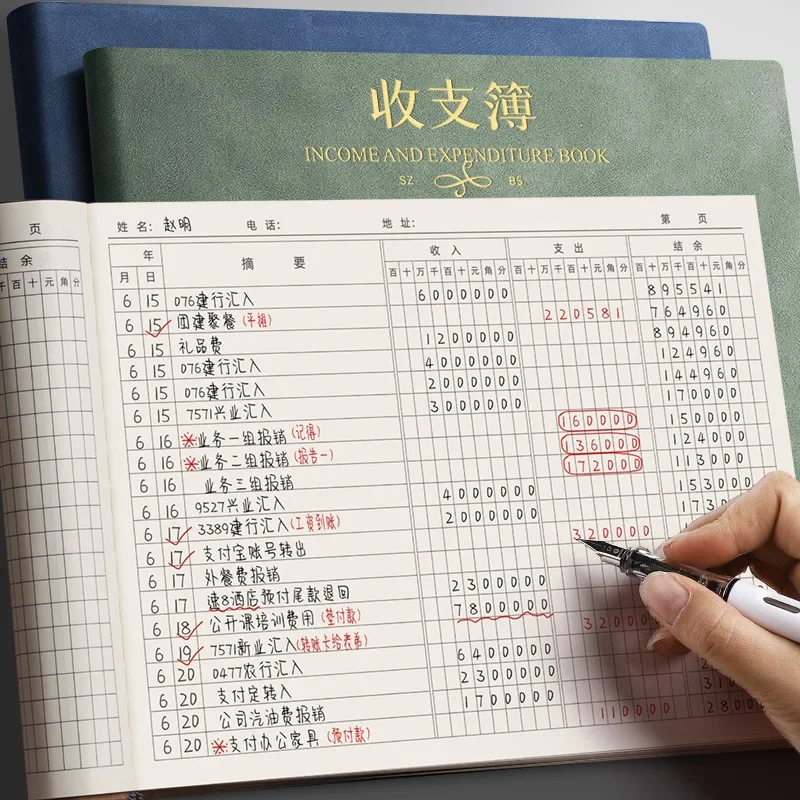 收支簿
INCOME AND EXPENDITURE BOOK
SZ B5
页
结 余
千 百 十 元 角 分
姓 名: 赵明 电 话: 地 址: 第 页
年 摘 要 收 入 支 出 结 余
月 日 百 十 万 千 百 十 元 角 分 百 十 万 千 百 十 元 角 分 百 十 万 千 百 十 元 角 分
6 15 076建行汇入 6000000 895541
6 15 团建聚餐 220581 764960
6 15 礼品费 1200000 894960
6 15 076建行汇入 4000000 124960
6 15 076建行汇入 2000000 144960
6 15 7571兴业汇入 3000000 170000
6 16 ※业务一组报销(记得) 160000 150000
6 16 ※业务二组报销(报告一) 136000 124000
6 16 业务三组报销 172000 113000
6 16 9527兴业汇入 4000000 153000
6 17 3389建行汇入(工资到账) 2000000 1730
6 17 支付宝账号转出 320000
6 17 外餐费报销
6 17 速8酒店预付尾款退回 2300000
6 18 公开课培训费用(垫付款) 7800000 32000
6 19 7571新业汇入(转账卡给表弟)
6 20 0477农行汇入 6400000
6 20 支付定转入 2300000
6 20 公司汽油费报销 1700000
6 20 ※支付办公家具(预付款) 110000 28000